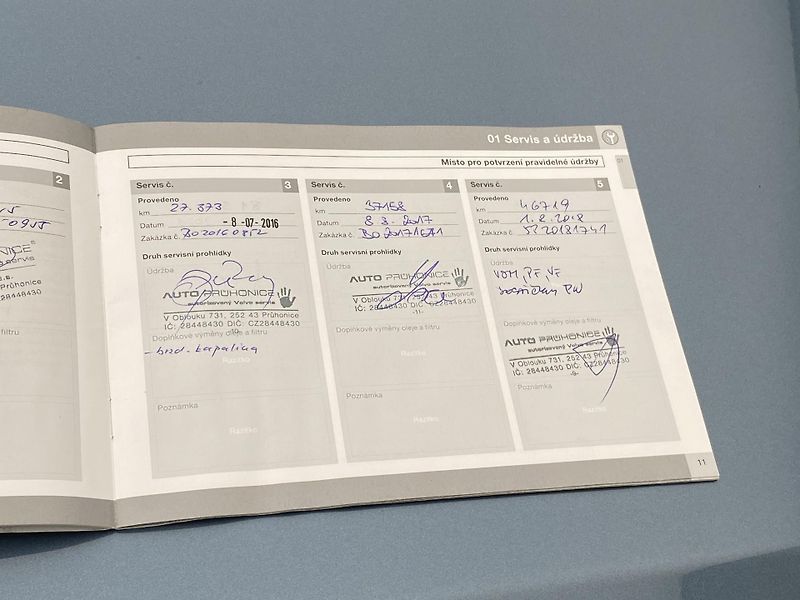 01 Servis a údržba
01
Místo pro potvrzení pravidelné údržby
2
Servis č. 3
Provedeno
km 27.373
Datum - 8 -07- 2016
Zakázka č. BO20160852
Druh servisní prohlídky
Údržba
AUTO PRŮHONICE
autorizovaný Volvo servis
V Oblouku 731, 252 43 Průhonice
IČ: 28448430 DIČ: CZ28448430
-10-
Doplňkové výměny oleje a filtru
- brzd. kapalina
Razítko
Poznámka
Razítko
Servis č. 4
Provedeno
km 37158
Datum 8 3. 2017
Zakázka č.
Druh servisní prohlídky
Údržba
AUTO PRŮHONICE
autorizovaný Volvo servis
V Oblouku 731, 252 43 Průhonice
IČ: 28448430 DIČ: CZ28448430
-11-
Doplňkové výměny oleje a filtru
Razítko
Poznámka
Razítko
Servis č. 5
Provedeno
km 46719
Datum 1. 2. 2018
Zakázka č.
Druh servisní prohlídky
Údržba
VOM, PF, VF
AUTO PRŮHONICE
autorizovaný Volvo servis
V Oblouku 731, 252 43 Průhonice
IČ: 28448430 DIČ: CZ28448430
Poznámka
Razítko
Průhonice
28448430
11